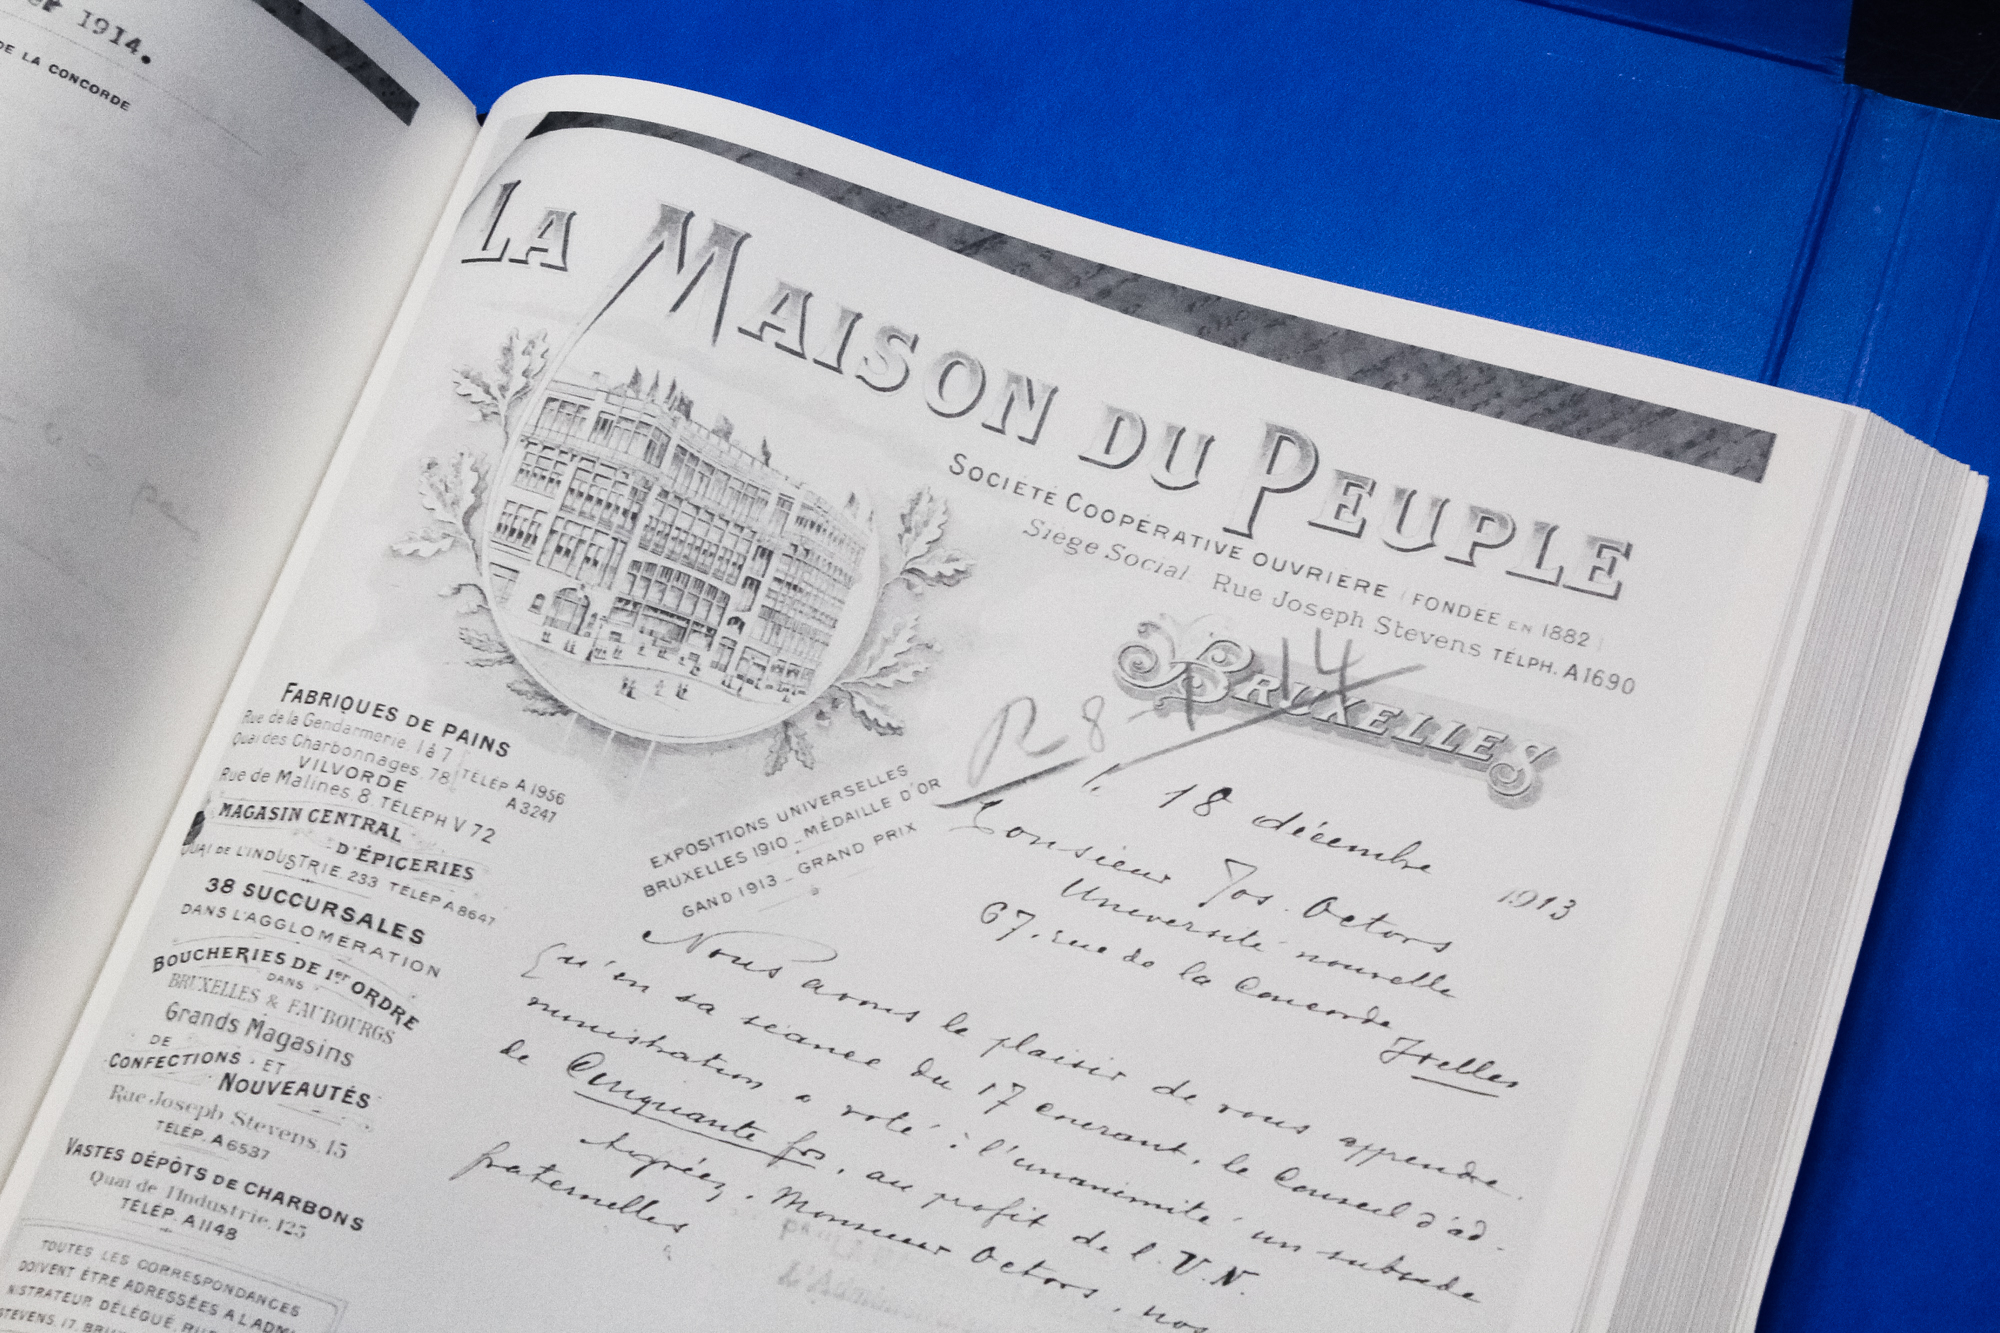 1914.
DE LA CONCORDE
LA MAISON DU PEUPLE
SOCIÉTÉ COOPÉRATIVE OUVRIÈRE (FONDÉE EN 1882)
Siège Social. Rue Joseph Stevens TÉLPH. A1690
BRUXELLES
R 8
14
18 décembre 1913
Monsieur Jos. Octors
Université nouvelle
67. rue de la Concorde
Ixelles
Nous avons le plaisir de vous apprendre
qu'en sa séance du 17 courant, le Conseil d'ad-
ministration a voté à l'unanimité un subside
de Cinquante frs, au profit de l'U.N.
Agréez, Monsieur Octors, nos
fraternelles
FABRIQUES DE PAINS
Rue de la Gendarmerie, 1 à 7
Quai des Charbonnages, 78
TÉLÉP A1956
A3247
VILVORDE
Rue de Malines, 8 TÉLÉPH V 72
MAGASIN CENTRAL
D'ÉPICERIES
QUAI DE L'INDUSTRIE, 233 TÉLÉP A8647
38 SUCCURSALES
DANS L'AGGLOMÉRATION
BOUCHERIES DE 1er ORDRE
DANS
BRUXELLES & FAUBOURGS
Grands Magasins
DE
CONFECTIONS · ET
NOUVEAUTÉS
Rue Joseph Stevens, 15
TÉLÉP. A6537
VASTES DÉPÔTS DE CHARBONS
Quai de l'Industrie, 125
TÉLÉP. A1148
TOUTES LES CORRESPONDANCES
DOIVENT ÊTRE ADRESSÉES A L'ADMI
NISTRATEUR DÉLÉGUÉ, RUE
STEVENS, 17, BRU
EXPOSITIONS UNIVERSELLES
BRUXELLES 1910 _ MÉDAILLE D'OR
GAND 1913 _ GRAND PRIX